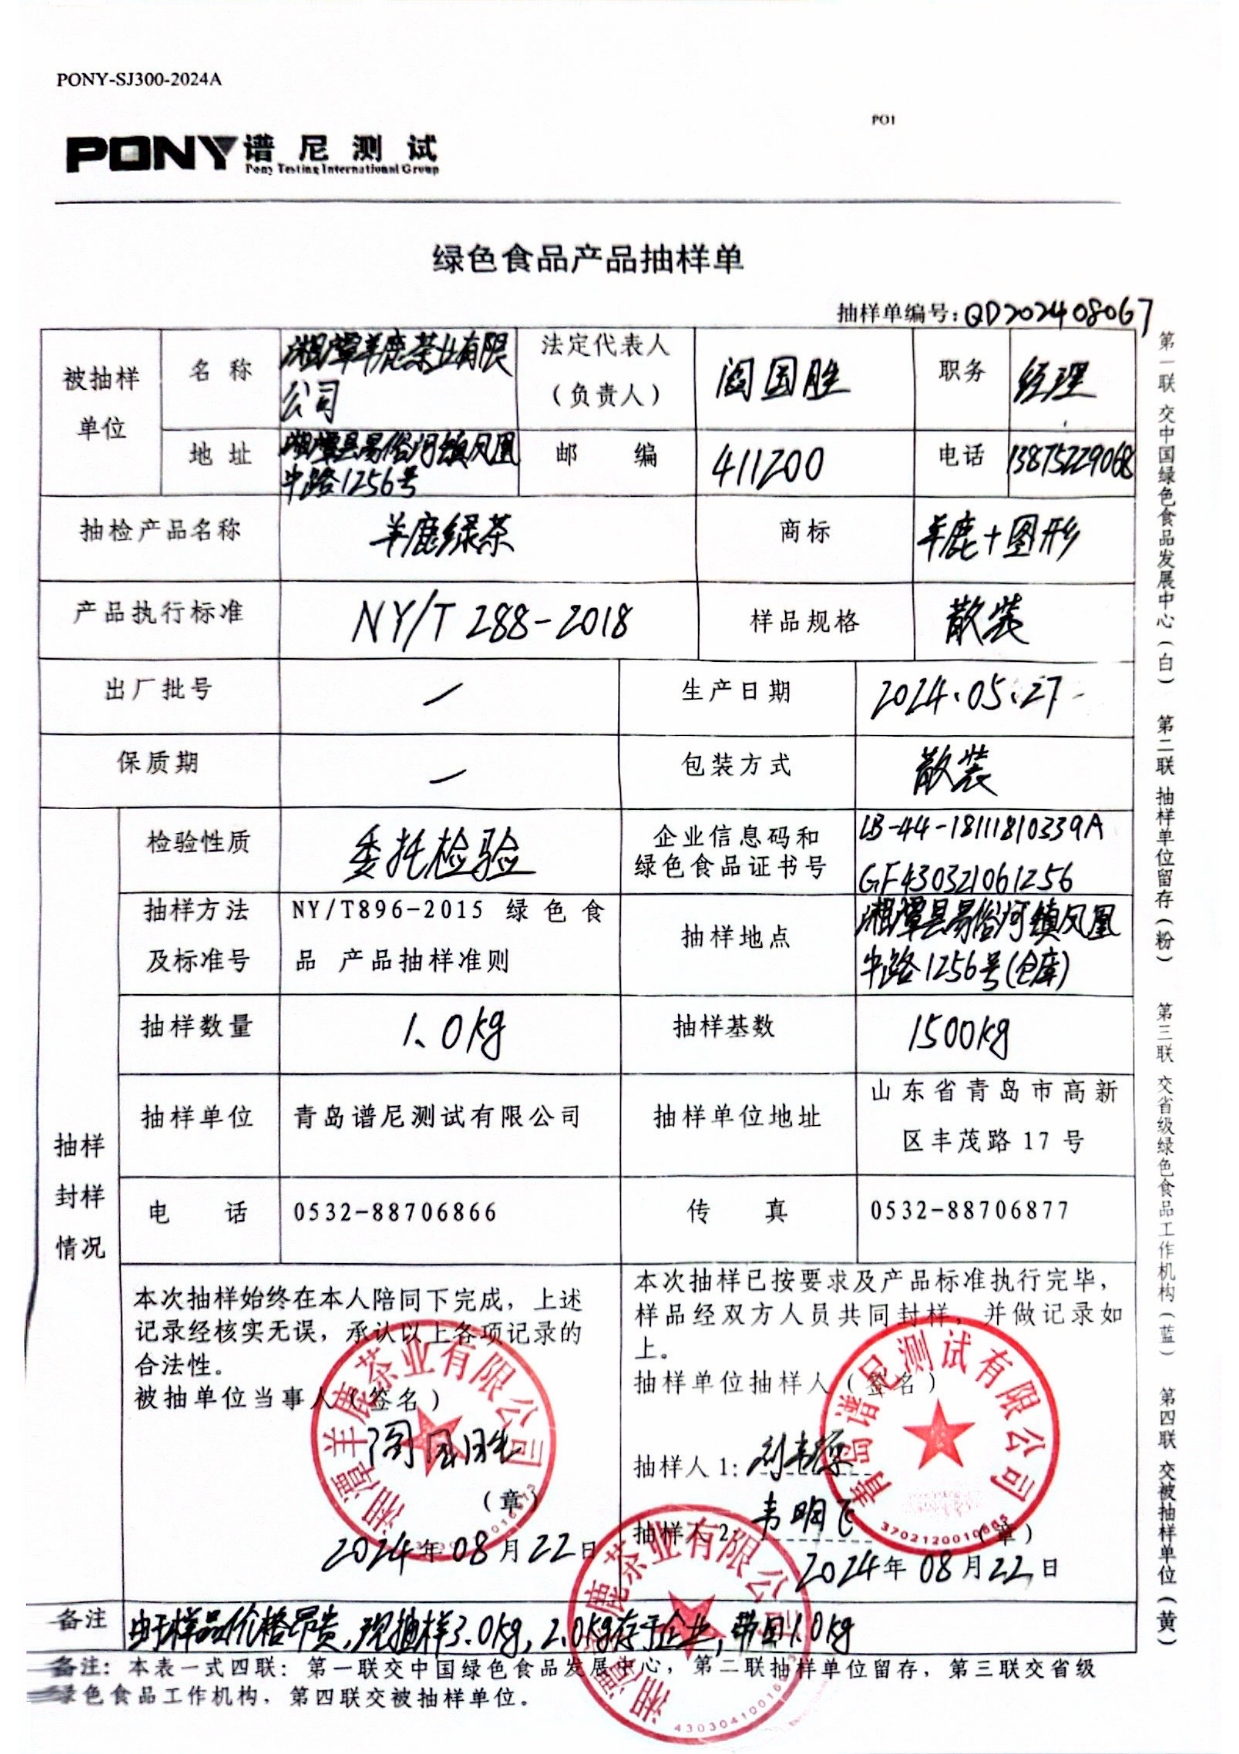 PONY-SJ300-2024A
PO1
PONY 谱尼测试
Pony Testing International Group
绿色食品产品抽样单
抽样单编号:QD202408067
被抽样单位
名称
湘潭羊鹿茶业有限
公司
法定代表人
(负责人)
阎国胜
职务
经理
地址
湘潭县易俗河镇凤凰
中路1256号
邮编
411200
电话
13875229068
抽检产品名称
羊鹿绿茶
商标
羊鹿+图形
产品执行标准
NY/T 288-2018
样品规格
散装
出厂批号
/
生产日期
2024.05.27
保质期
/
包装方式
散装
抽样
封样
情况
检验性质
委托检验
企业信息码和
绿色食品证书号
LB-44-18111810339A
GF430321061256
抽样方法
及标准号
NY/T896-2015 绿色食
品 产品抽样准则
抽样地点
湘潭县易俗河镇凤凰
中路1256号(仓库)
抽样数量
1.0kg
抽样基数
1500kg
抽样单位
青岛谱尼测试有限公司
抽样单位地址
山东省青岛市高新
区丰茂路 17 号
电话
0532-88706866
传真
0532-88706877
本次抽样始终在本人陪同下完成,上述
记录经核实无误,承认以上各项记录的
合法性。
被抽单位当事人(签名)
阎国胜
(章)
2024年08月22日
湘潭羊鹿茶业有限公司
本次抽样已按要求及产品标准执行完毕,
样品经双方人员共同封样,并做记录如
上。
抽样单位抽样人(签名)
抽样人1:
抽样人2:
韦明飞
(章)
2024年08月22日
青岛谱尼测试有限公司
备注
由于样品价格昂贵,现抽样3.0kg,2.0kg存于企业,带回1.0kg
备注:本表一式四联:第一联交中国绿色食品发展中心,第二联抽样单位留存,第三联交省级
绿色食品工作机构,第四联交被抽样单位。
湘潭羊鹿茶业有限公司
第一联 交中国绿色食品发展中心(白) 第二联 抽样单位留存(粉) 第三联 交省级绿色食品工作机构(蓝) 第四联 交被抽样单位(黄)